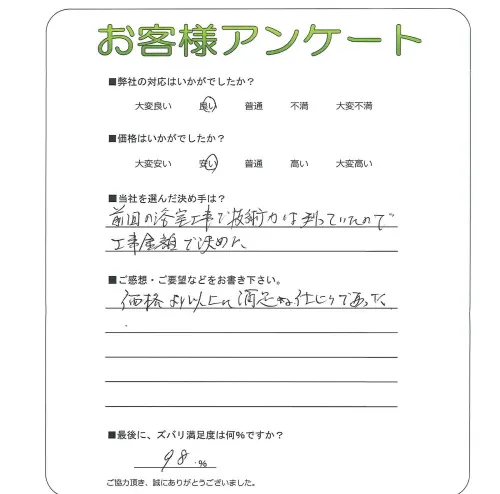 お客様アンケート
■弊社の対応はいかがでしたか？
大変良い 良い 普通 不満 大変不満
■価格はいかがでしたか？
大変安い 安い 普通 高い 大変高い
■当社を選んだ決め手は？
前回の浴室工事で技術力は判っていたので
工事金額で決めた
■ご感想・ご要望などをお書き下さい。
価格より以上に満足な仕上りであった
■最後に、ズバリ満足度は何％ですか？
98.％
ご協力頂き、誠にありがとうございました。